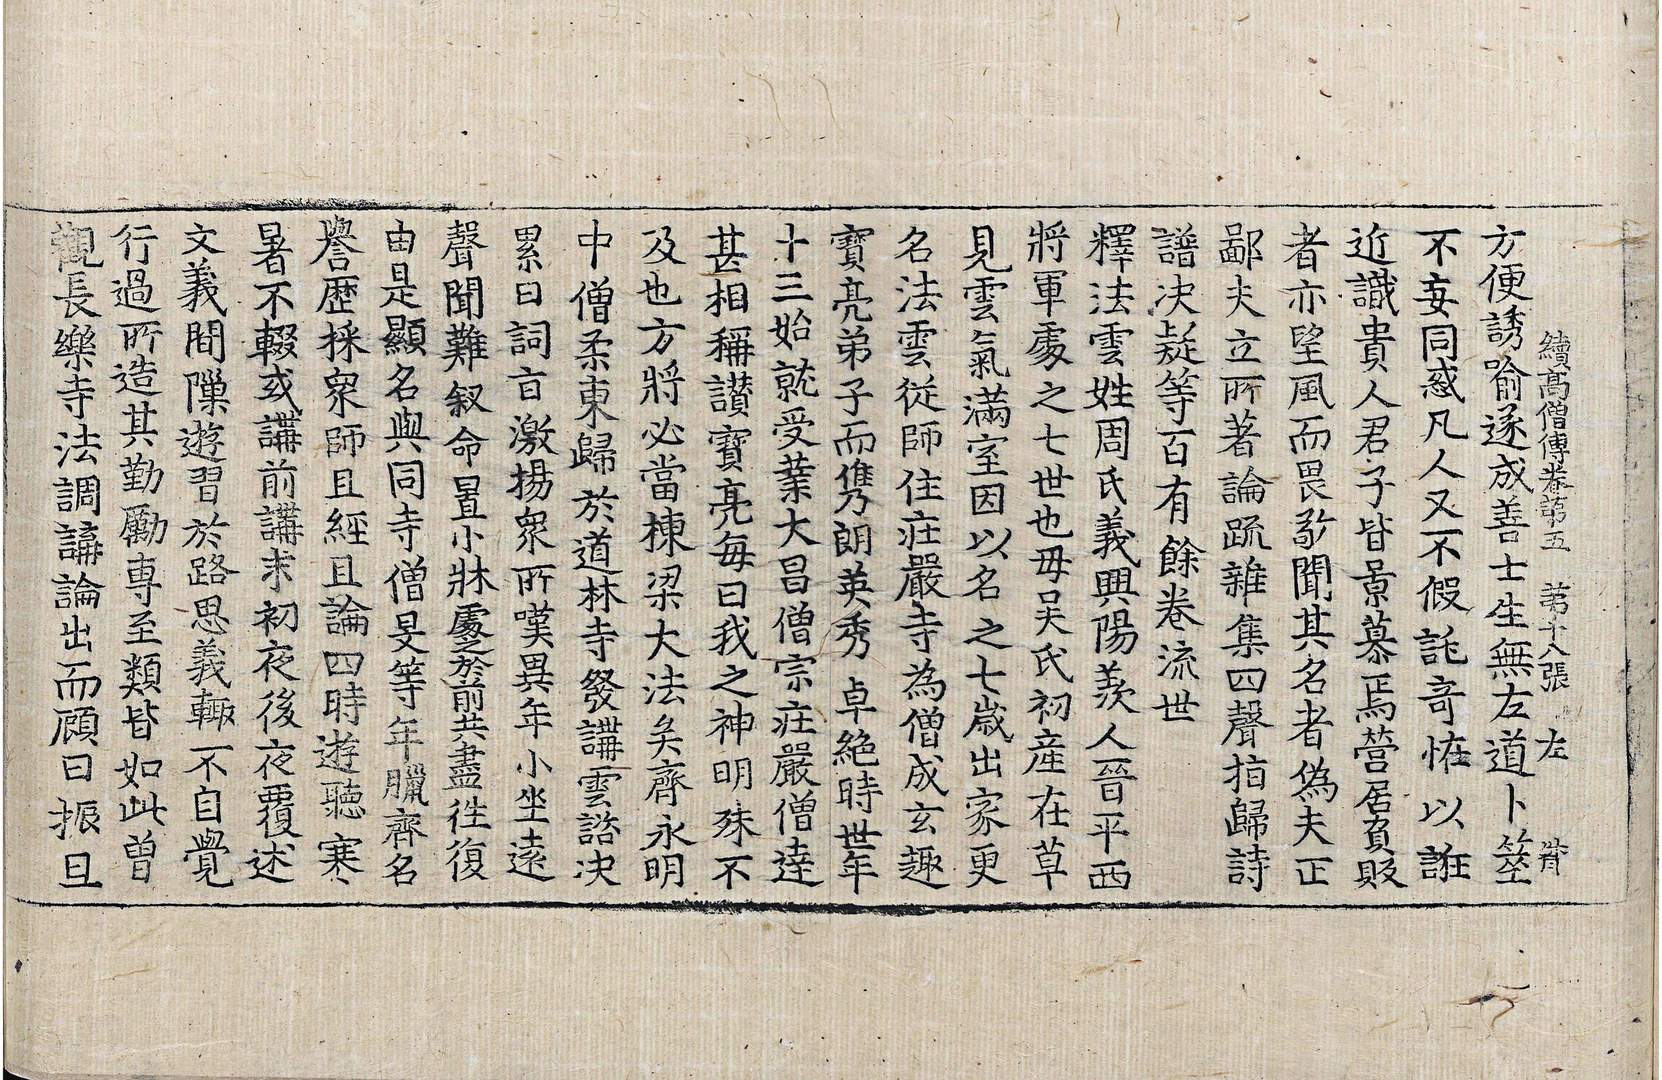 續高僧傳卷第五 第十八張 左
方便誘喻遂成善士生無左道卜筮
不妄同惑凡人又不假託奇恠以誑
近識貴人君子皆景慕焉營居負販
者亦望風而畏敬聞其名者偽夫正
鄙夫立所著論疏雜集四聲指歸詩
譜决疑等百有餘卷流世
釋法雲姓周氏義興陽羨人晉平西
將軍處之七世也母吳氏初產在草
見雲氣滿室因以名之七歲出家更
名法雲從師住莊嚴寺為僧成玄趣
寶亮弟子而雋朗英秀卓絕時世年
十三始就受業大昌僧宗莊嚴僧達
甚相稱讃寶亮每曰我之神明殊不
及也方將必當棟梁大法矣齊永明
中僧柔東歸於道林寺發講雲諮决
累日詞旨激揚衆所嘆異年小坐遠
聲聞難叙命置小牀處之於前共盡往復
由是顯名與同寺僧旻等年臘齊名
譽歷採衆師且經且論四時遊聽寒
暑不輟或講前講末初夜後夜覆述
文義間隟遊習於路思義輙不自覺
行過所造其勤勵專至類皆如此曾
觀長樂寺法調講論出而顧曰振旦